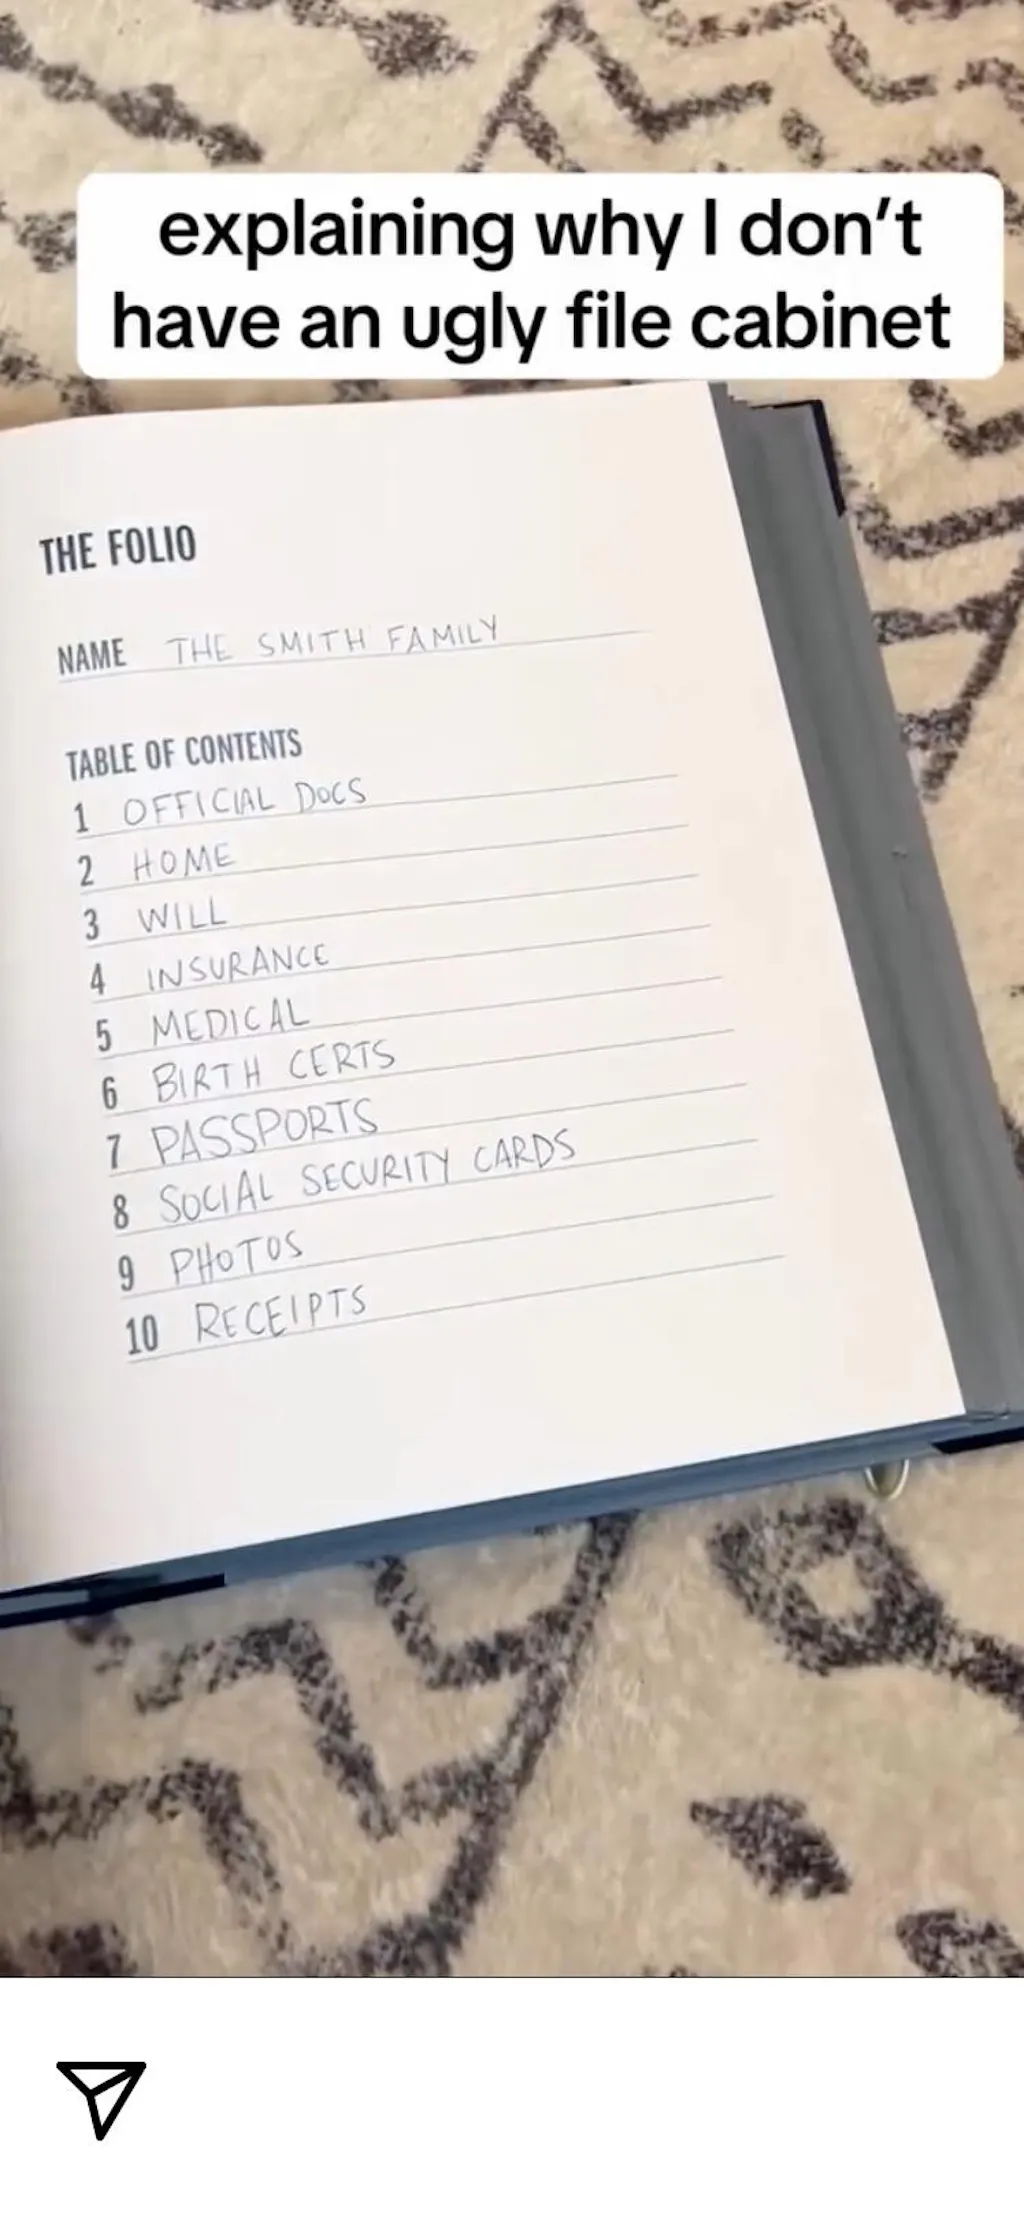 explaining why I don't
have an ugly file cabinet
THE FOLIO
NAME THE SMITH FAMILY
TABLE OF CONTENTS
1 OFFICIAL DOCS
2 HOME
3 WILL
4 INSURANCE
5 MEDICAL
6 BIRTH CERTS
7 PASSPORTS
8 SOCIAL SECURITY CARDS
9 PHOTOS
10 RECEIPTS